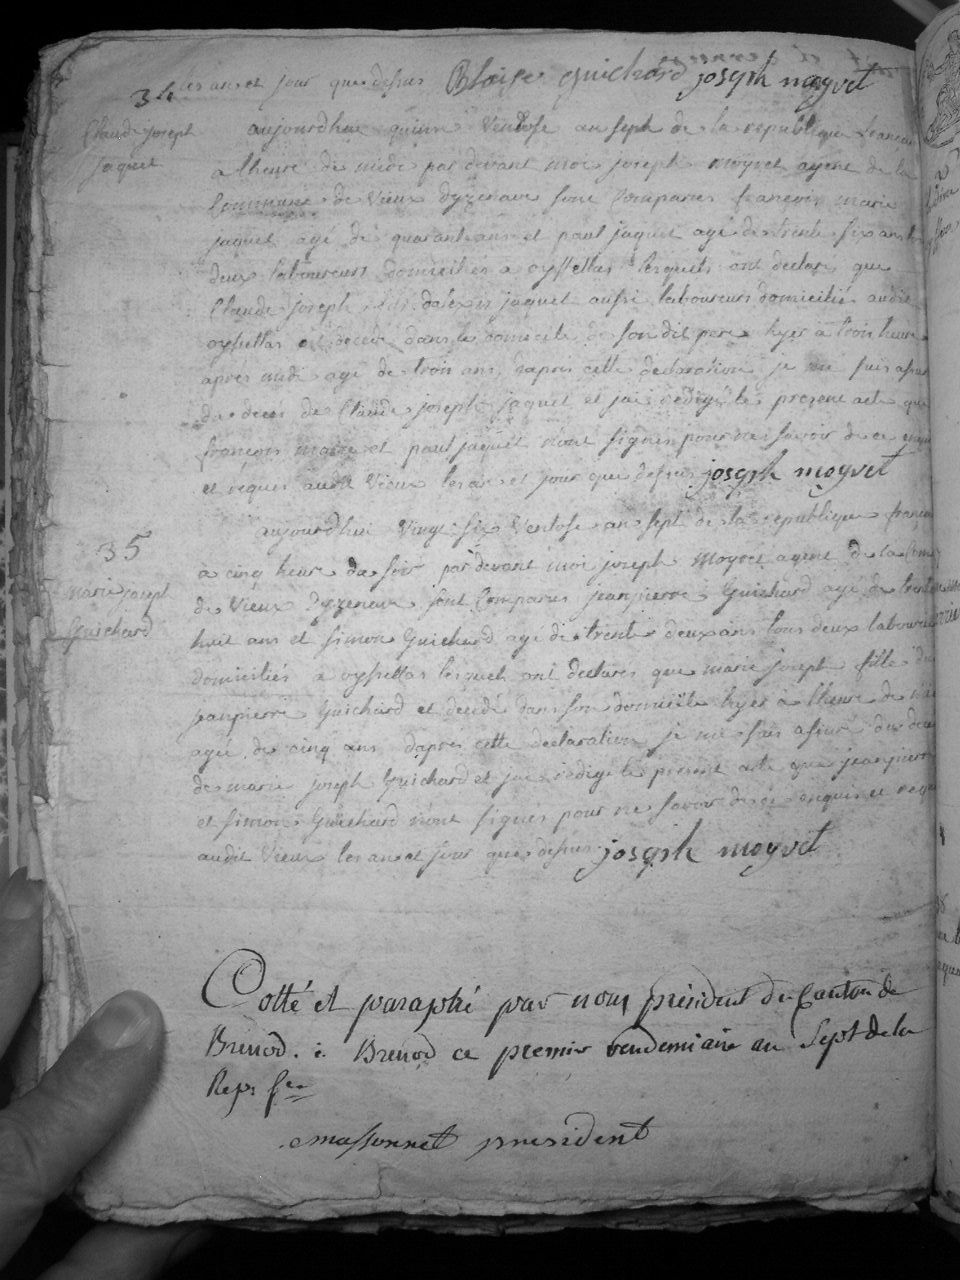 les an et jour que desus Blaise guichard joseph moyret
34
Claude joseph
jaquet
aujourdhui quinze Ventose an sept de la republique francai
a lheure de midi par devant moi joseph moyret agent de la
Commune de Vieux dyzenave sont Comparus francois marie
jaquet agé de quarante ans et paul jaquet agé de trente six ans
deux laboureurs domiciliés a oyssellas lesquels ont declare que
Claude joseph fils dalexis jaquet aussi laboureurs domicilié audit
oyssellas et décédé dans le domicile de son dit pere hyer à trois heure
apres midi agé de trois ans, dapres cette declaration je me suis assuré
du décés de Claude joseph jaquet et jai rédigé le present acte que
françois marie et paul jaquet n'ont signes pour ne savoir de ce enquis
et requis audit Vieux les an et jour que desus joseph moyret
35
marie joseph
Guichard
aujourdhui Vingt six Ventose an sept de la republique françai
à cinq heure du soir par devant moi joseph Moyret agent de la Com
de Vieux dyzeneve sont Comparus jeanpierre Guichard agé de trente
huit ans et simon Guichard agé de trente deux ans tous deux laboureur
domiciliés a oyssellas lesquels ont declarés que marie joseph fille du
jeanpierre Guichard et décédé dans son domicile hyer à lheure de
agée de cinq ans dapres cette declaration je me suis assuré du dece
de marie joseph Guichard et jai rédigé le present acte que jeanpierre
et simon Guichard n'ont signes pour ne savoir de ce enquis et requis
audit Vieux les an et jour que desus joseph moyret
Cotté et paraphé par nous président du Canton de
Brenod. à Brenod ce premier vendemiaire an Sept de la
Rep. fse
massonnet president